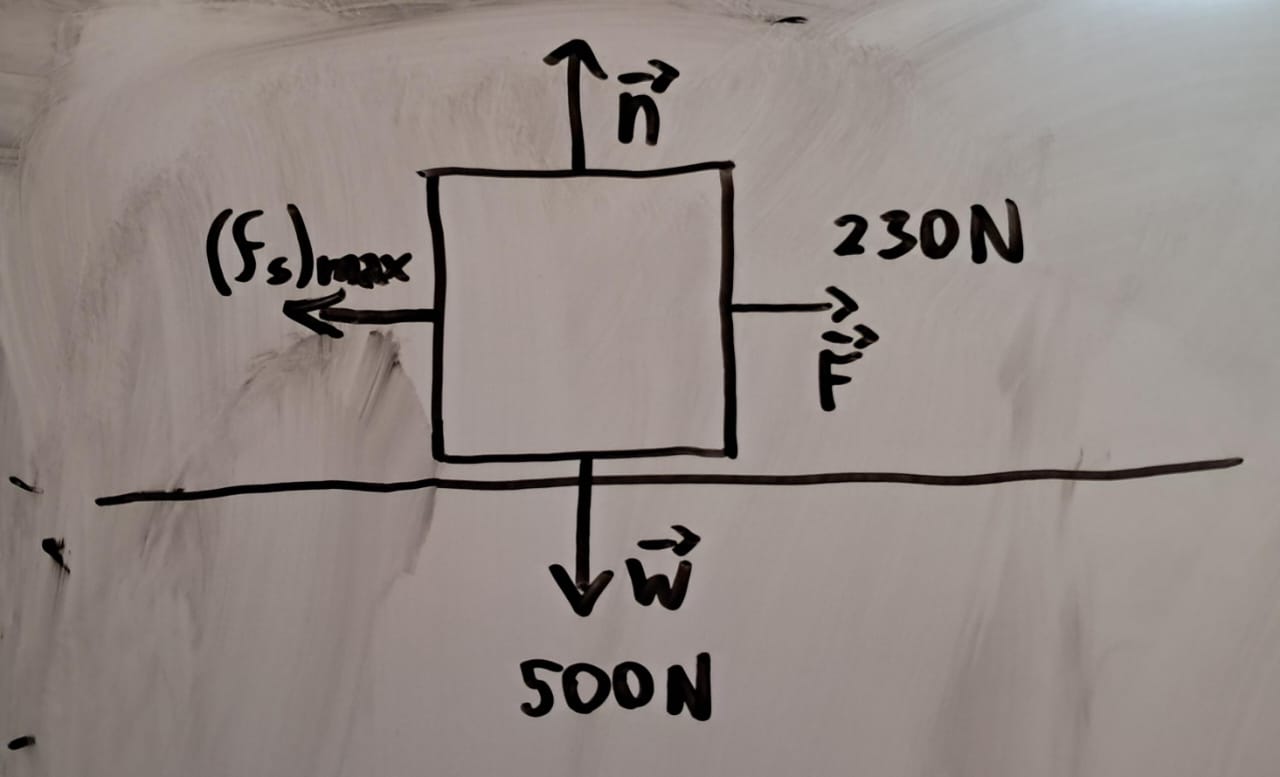 n⃗
(fₛ)ₘₐₓ
230N
F⃗
w⃗
500N